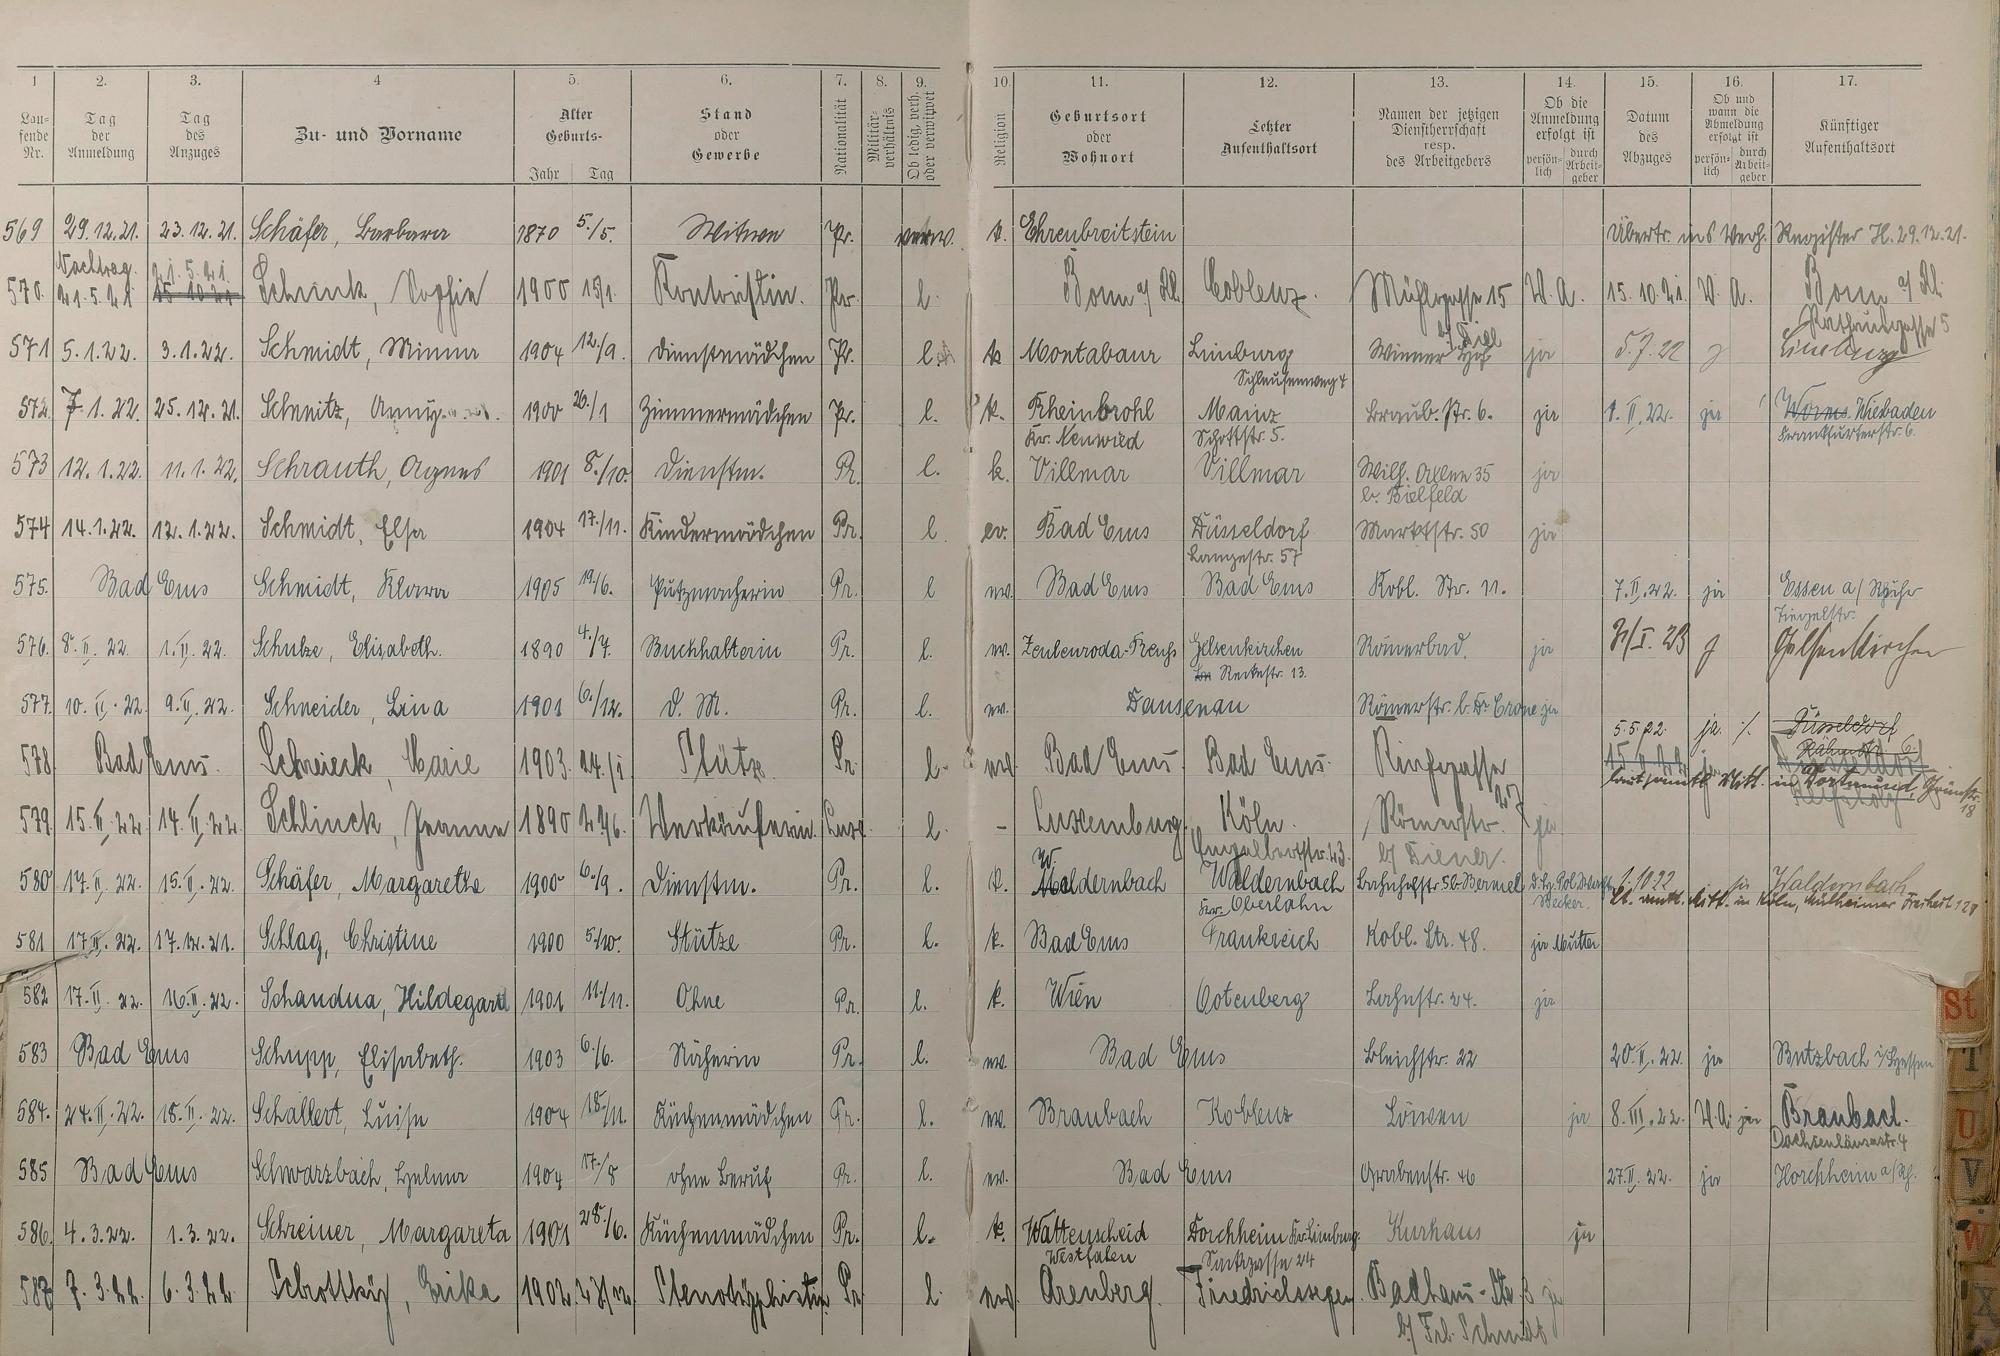 1 2. 3. 4 5. 6. 7. 8. 9. 10. 11. 12. 13. 14. 15. 16. 17.
Laufende Nr. Tag der Anmeldung Tag des Anzuges Zu- und Vorname Alter Geburts- Jahr Tag Stand oder Gewerbe Nationalität Militärverhältnis Ob ledig, verh. oder verwitwet Religion Geburtsort oder Wohnort Letzter Aufenthaltsort Namen der jetzigen Dienstherrschaft resp. des Arbeitgebers Ob die Anmeldung erfolgt ist persönlich durch Arbeitgeber Datum des Abzuges Ob und wann die Abmeldung erfolgt ist persönlich durch Arbeitgeber Künftiger Aufenthaltsort
569 29.12.21. 23.12.21. Schäfer, Barbara 1870 5./5. Witwe Pr. verw. k. Ehrenbreitstein Übertr. ins Verh. Register H. 29.12.21.
Nachtrag. 21.5.21.
570. 21.5.21 15.10.21 Schenk, Sophie 1900 15/1. Kontoristin. Pr. l. Bonn a/Rh. Coblenz. Mühlgasse 15 W. A. 15.10.21. W. A. Bonn a/Rh.
Rathausgasse 5
571 5.1.22. 3.1.22. Schmidt, Minna 1904 12./9. Dienstmädchen Pr. l. k Montabaur Limburg Wiener Hof ja 5.7.22 Limburg
Schleusenweg 4
572. 7.1.22. 25.12.21. Schmitz, Anny 1900 26./1 Zimmermädchen Pr. l. k. Rheinbrohl Mainz Braub. Str. 6. ja 1.II.22. ja Worms. Wiesbaden
Kr. Neuwied Schottstr. 5. Frankfurterstr. 6.
573 12.1.22. 11.1.22. Schrauth, Agnes 1901 8./10. Dienstm. Pr. l. k. Villmar Villmar Wilh. Allee 35 ja
b. Bielfeld
574 14.1.22. 12.1.22. Schmidt, Elsa 1904 17./11. Kindermädchen Pr. l ev. Bad Ems Düsseldorf Marktstr. 50 ja
Langestr. 57
575. Bad Ems Schmidt, Klara 1905 19./6. Putzmacherin Pr. l ev. Bad Ems Bad Ems Kobl. Str. 11. 7.II.22. ja Essen a/Ruhr
576. 8.II.22. 1.II.22. Schulze, Elisabeth. 1890 4./7. Buchhalterin Pr. l. ev. Zeulenroda-Reuß Gelsenkirchen Römerbad. ja 31/I.23 Gelsenkirchen
Reckestr. 13.
577. 10.II.22. 9.II.22. Schneider, Lina 1901 6./12. D. M. Pr. l. ev. Dausenau Römerstr. b. Dr. Crone ja
5.5.22. ja Düsseldorf
578. Bad Ems. Schreieck, Marie 1903. 24./1 Stütze. Pr. l. ev. Bad Ems. Bad Ems. Düsseldorf
Mitt. in Dortmund, Grünstr. 18
579 15.II.22 14.II.22. Schlinck, Jeanne 1890 27/6. Verkäuferin. Lux. l. - Luxemburg. Köln. Römerstr. ja
Engelbertstr. 23. b/ Diener.
580 17.II.22. 15.II.22. Schäfer, Margarethe 1900 6./9. Dienstm. Pr. l. k. Waldernbach Waldernbach Bahnhofstr. 5 1.10.22 ja Waldernbach
Kr. Oberlahn Becker. lt. amtl. Mitt. in Köln, Mülheimer Freiheit 128
581 17.II.22. 17.12.21. Schlag, Christine 1900 5./10. Stütze Pr. l. k. Bad Ems Frankreich Kobl. Str. 48. ja Mutter
582 17.II.22. 16.II.22. Schandua, Hildegard 1901 11./11. Ohne Pr. l. k. Wien Ootenberg Lahnstr. 24. ja
583 Bad Ems Schupp, Elisabeth. 1903 6./6. Näherin Pr. l. ev. Bad Ems Bleichstr. 22 20.II.22. ja Butzbach i/Hessen
584. 24.II.22. 18.II.22. Schallert, Luise 1904 18./11. Küchenmädchen Pr. l. ev. Braubach Koblenz Löwen ja 8.III.22. W. A. ja Braubach.
Dachsenhäuserstr. 4
585 Bad Ems Schwarzbach, Helma 1904 17./8 ohne Beruf Pr. l. ev. Bad Ems Grabenstr. 46 27.II.22. ja Horchheim a/Rh.
586. 4.3.22. 1.3.22. Schreiner, Margareta 1901 28./6. Küchenmädchen Pr. l. k. Wattenscheid Dorchheim Kr. Limburg. Kurhaus ja
Westfalen Sackgasse 24
587 7.3.22 6.3.22 Schottky, Erika 1902. Stenotypistin Pr. l ev. Arenberg. Friedrichssegen. Badhaus-Str. 3 ja
b/ Frl. Schmidt
St
T
U
V
W
X